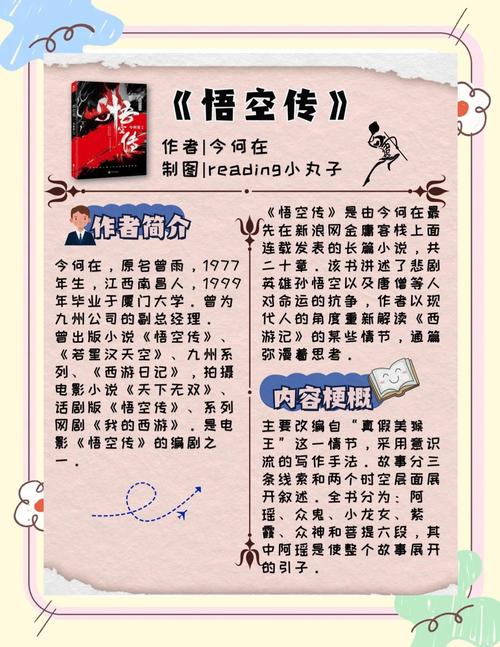 悟空传
《悟空传》
作者|今何在
制图|reading小丸子
作者简介
今何在，原名曾雨，1977
年生，江西南昌人，1999
年毕业于厦门大学．曾为
九州公司的副总经理．
曾出版小说《悟空传》、
《若星汉天空》、九州系
列、《西游日记》，拍摄
电影小说《天下无双》、
话剧版《悟空传》、系列
网剧《我的西游》．是电
影《悟空传》的编剧之
一．
《悟空传》是由今何在最
先在新浪网金庸客栈上面
连载发表的长篇小说，共
二十章．该书讲述了悲剧
英雄孙悟空以及唐僧等人
对命运的抗争，作者以现
代人的角度重新解读《西
游记》的某些情节，通篇
弥漫着思考．
内容梗概
主要改编自“真假美猴
王”这一情节，采用意识
流的写作手法．故事分三
条线索和两个时空层面展
开叙述．全书分为：阿
瑶、众鬼、小龙女、紫
霞、众神和菩提六段，其
中阿瑶是使整个故事展开
的引子．